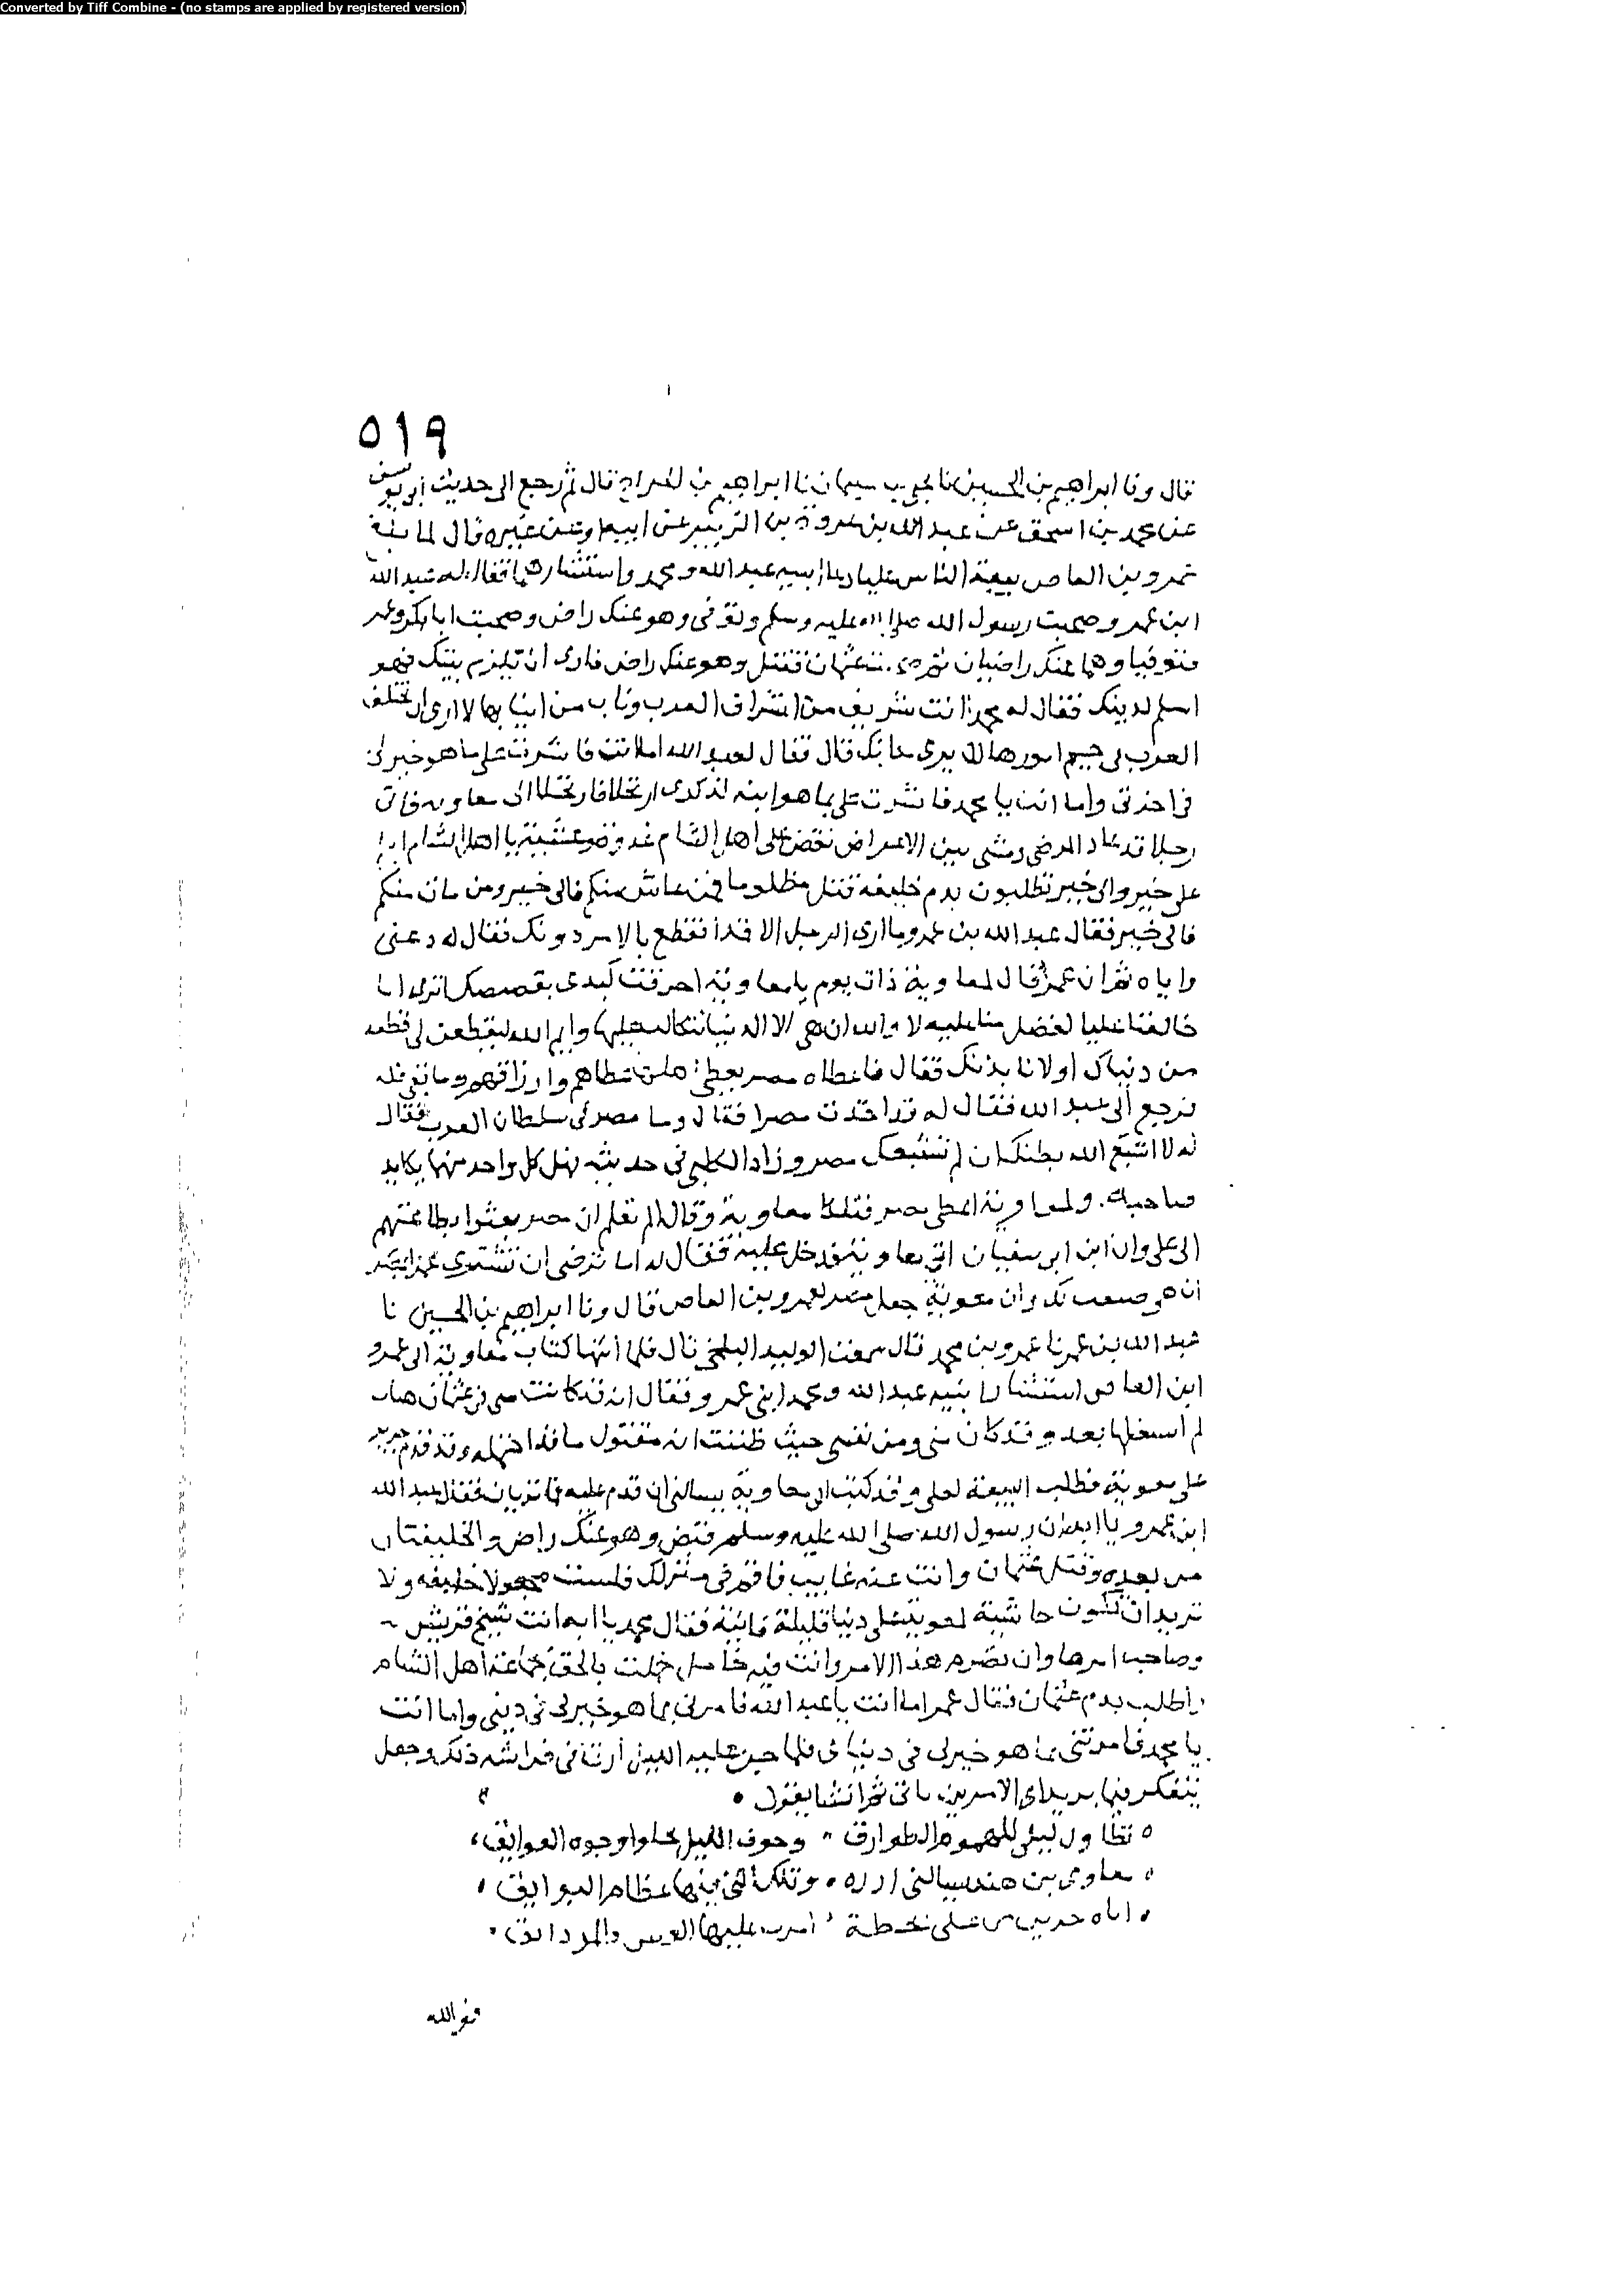 Converted by Tiff Combine - (no stamps are applied by registered version)
٥١٩
قال ونا ابراهيم بن الحسين نا يحيى بن سليمان نا ابراهيم بن الجراح قال ثم رجع الى حديث أبى يوسف
عن محمد بن اسحق عن عبد الله بن عروة بن الزبير عن ابيه وعن غيره قال لما بلغ
عمرو بن العاص بيعة الناس عليا دعا ابنيه عبد الله ومحمد واستشارهما فقال له عبد الله
ابن عمرو صحبت رسول الله صلى الله عليه وسلم وتوفى وهو عنك راض وصحبت ابا بكر وعمر
فتوفيا وهما عنك راضيان ثم عثمان فقتل وهو عنك راض فارى ان تلزم بيتك فهو
اسلم لدينك فقال له محمد انت شريف من اشراف العرب وناب من انيابها لا ارى ان تختلف
العرب فى جسيم امورها لا يرى مكانك قال فقال لعبد الله اما انت فاشرت على ما هو خير لى
فى اخرتى واما انت يا محمد فاشرت على بما هو ابنه لذكرى ارتحلا فارتحلا الى معاوية فاتى
رجلا قد عاد المرضى ومشى بين الاعراض يقص على اهل الشام غدوة وعشية يا اهل الشام انكم
على خير والى خير تطلبون بدم خليفة قتل مظلوما فمن عاش منكم فالى خير ومن مات منكم
فالى خير فقال عبد الله بن عمرو ما ارى الرجل الا قد انقطع بالامر دونك فقال له دعنى
واياه ثم ان عمرا قال لمعاوية ذات يوم يا معاوية احرقت كبدى بقصصك اترى انا
خالفنا عليا لفضل منا عليه لا والله ان هى الا الدنيا نتكالب عليها وايم الله لتقطعن لى قطعة
من دنياك اولا نابذنك فقال فاعطاه مصر يعطى اهلها عطاهم وارزاقهم وما بقى فله
فرجع الى عبد الله فقال له قد اخذت مصرا فقال وما مصر فى سلطان العرب فقال
له لا اشبع الله بطنك ان لم تشبعك مصر وزاد الكلبى فى حديثه فهل كل واحد منهما يكايد
صاحبه. ولمعاوية اعطى مصر فتلكا معاوية وقال الم تعلم ان مصر بعثوا بطاعتهم
الى على وان ابن ابى سفيان اتى معاوية فدخل عليه فقال له اما ترضى ان تشترى عمرا بمصر
ان هى صفت لك وان معوية جعل مصر لعمرو بن العاص قال ونا ابراهيم بن الحسين نا
عبد الله بن عمر نا عمرو بن محمد قال سمعت الوليد البلخى قال فلما انتها كتاب معاوية الى عمرو
ابن العاص استشار ابنيه عبد الله ومحمد ابنى عمرو فقال انه قد كانت منى فى عثمان هنات
لم اسخطها بعد وقد كان منى ومن نفسى حيث ظننت انه مقتول ما قد احتمله وقد قدم جرير
على معوية فطلب البيعة لعلى وقد كتب الى معاوية يسالنى ان قدم عليه فما تريان فقال عبد الله
ابن عمرو يا ابه ان رسول الله صلى الله عليه وسلم قبض وهو عنك راض والخليفتان
من بعده وقتل عثمان وانت عنه غايب فاقم فى منزلك فلست مجعولا خليفة ولا
تريد ان تكون حاشية لمعوية على دنيا قليلة فانية فقال محمد يا ابه انت شيخ قريش
وصاحب امرها وان تصرم هذا الامر وانت فيه خامل خملت بالحق بجماعة اهل الشام
واطلب بدم عثمان فقال عمرو اما انت يا عبد الله فامرتنى بما هو خير لى فى دينى واما انت
يا محمد فامرتنى بما هو خير لى فى دنياى فلما جن عليه الليل أرق فى فراشه ذلك وجعل
يتفكر فيما يريد اى الامرين ياتى ثم انشا يقول
تطاول ليلى للهموم الطوارق وخوف الليل تجلوا وجوه العوايق
معاوى بن هند يسالنى ازره وتلك التى فيها عظام البوايق
اتاه جرير من على بخطة امرت عليها العيش والمر دانق
فوالله